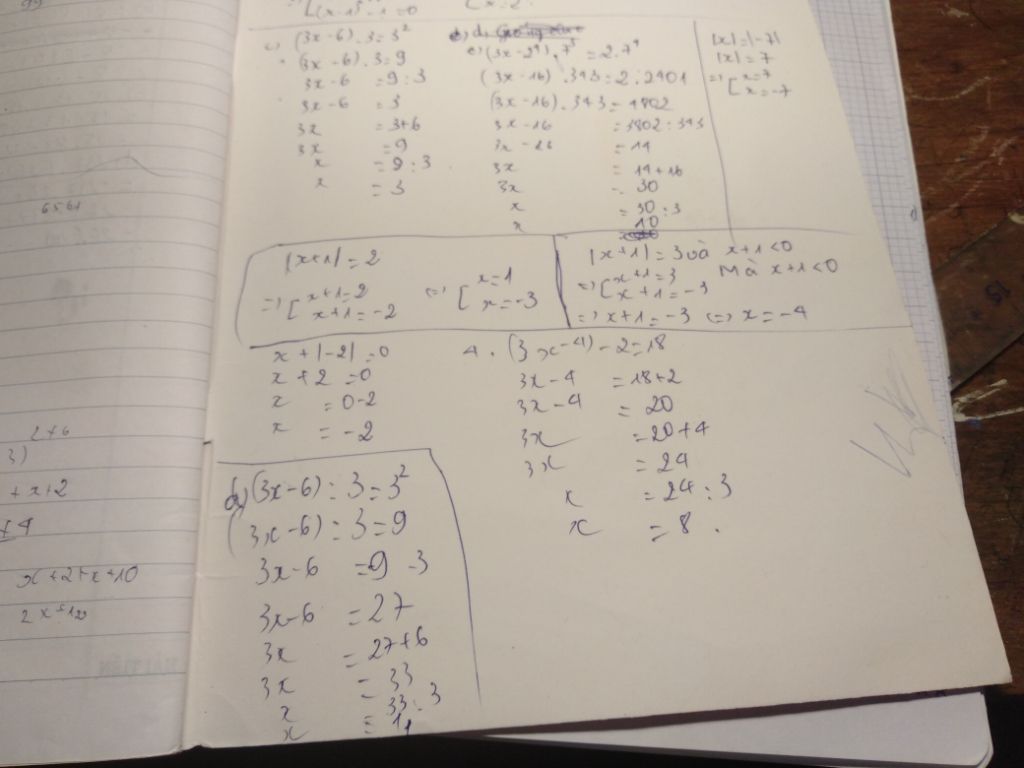 (x-1)⁵-1=0
[x=2
c) (3x-6).3=3²
(3x-6).3=9
3x-6 =9:3
3x-6 =3
3x =3+6
3x =9
x =9:3
x =3
c) (3x-2⁴).7³=2.7⁴
(3x-16).343=2.2401
(3x-16).343=4802
3x-16
=14
3x =14+16
3x = 30
x =30:3
x 10
|x|=|-7|
|x|=7
=>[x=7
x=-7
|x+1|=2
=>[x+1=2
x+1=-2
<=>[x=1
x=-3
|x+1|=3 và x+1<0
=>[x+1=3 Mà x+1<0
x+1=-3
=>x+1=-3 <=>x=-4
x+|-2|=0
x+2=0
x =0-2
x =-2
4. (3x-4)-2=18
3x-4 =18+2
3x-4 =20
3x =20+4
3x =24
x =24:3
x =8.
d) (3x-6):3=3²
(3x-6):3=9
3x-6 =9.3
3x-6 =27
3x =27+6
3x =33
x =33:3
x =11
99
6561
2+6
3)
+x+2
+4
x+2+x+10